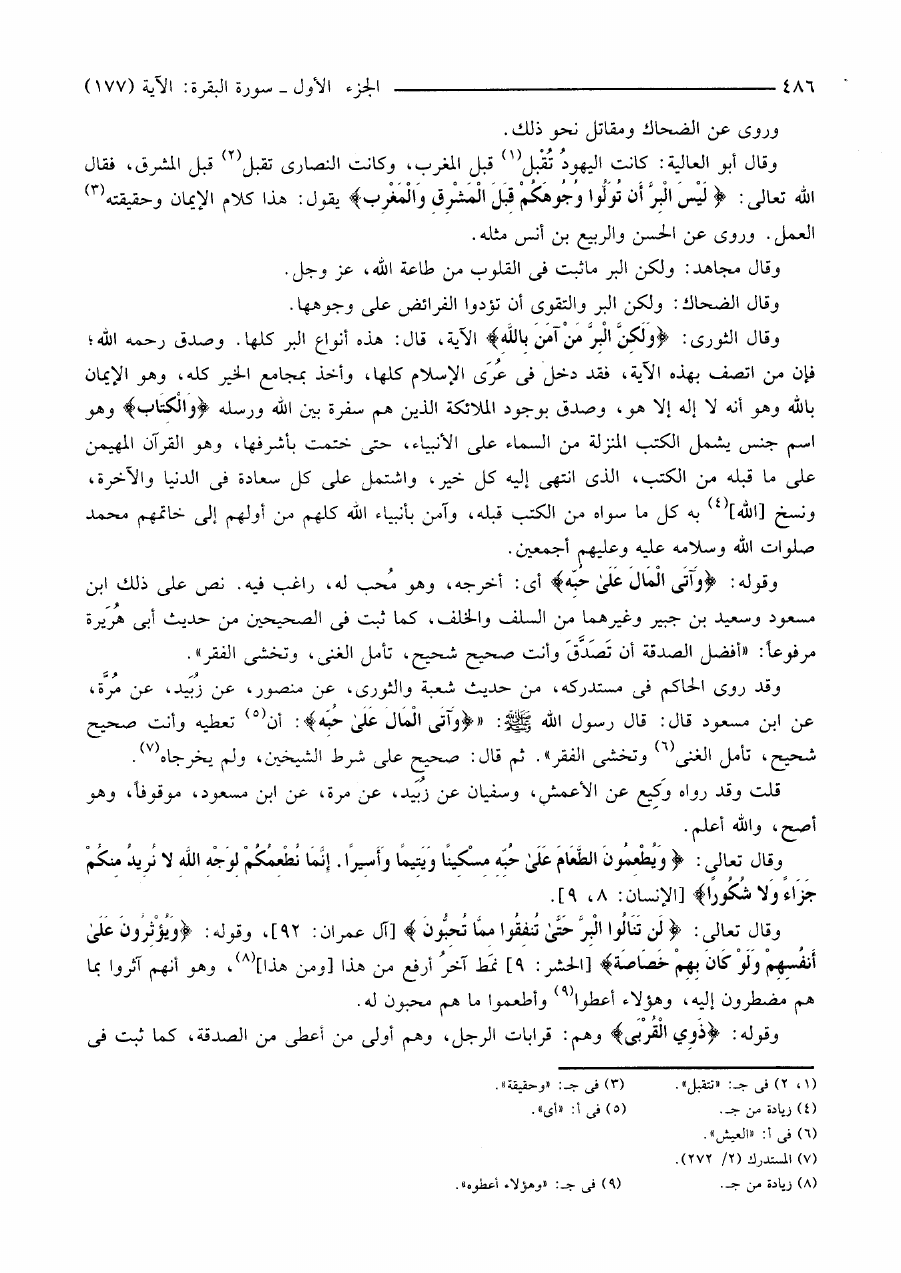 ٤٨٦ ــــــــــــــــ الجزء الأول ـ سورة البقرة: الآية (١٧٧)
وروى عن الضحاك ومقاتل نحو ذلك.
وقال أبو العالية: كانت اليهودُ تُقْبل(١) قبل المغرب، وكانت النصارى تقبل(٢) قبل المشرق، فقال
الله تعالى: ﴿ لَيْسَ الْبِرَّ أَن تُوَلُّوا وُجُوهَكُمْ قِبَلَ الْمَشْرِقِ وَالْمَغْرِبِ﴾ يقول: هذا كلام الإيمان وحقيقته(٣)
العمل. وروى عن الحسن والربيع بن أنس مثله.
وقال مجاهد: ولكن البر ماثبت فى القلوب من طاعة الله، عز وجل.
وقال الضحاك: ولكن البر والتقوى أن تؤدوا الفرائض على وجوهها.
وقال الثورى: ﴿وَلَكِنَّ الْبِرَّ مَنْ آمَنَ بِاللَّهِ﴾ الآية، قال: هذه أنواع البر كلها. وصدق رحمه الله؛
فإن من اتصف بهذه الآية، فقد دخل فى عُرَى الإسلام كلها، وأخذ بمجامع الخير كله، وهو الإيمان
بالله وهو أنه لا إله إلا هو، وصدق بوجود الملائكة الذين هم سفرة بين الله ورسله ﴿وَالْكِتَابِ﴾ وهو
اسم جنس يشمل الكتب المنزلة من السماء على الأنبياء، حتى ختمت بأشرفها، وهو القرآن المهيمن
على ما قبله من الكتب، الذى انتهى إليه كل خير، واشتمل على كل سعادة فى الدنيا والآخرة،
ونسخ [الله](٤) به كل ما سواه من الكتب قبله، وآمن بأنبياء الله كلهم من أولهم إلى خاتمهم محمد
صلوات الله وسلامه عليه وعليهم أجمعين.
وقوله: ﴿وَآتَى الْمَالَ عَلَىٰ حُبِّهِ﴾ أى: أخرجه، وهو مُحب له، راغب فيه. نص على ذلك ابن
مسعود وسعيد بن جبير وغيرهما من السلف والخلف، كما ثبت فى الصحيحين من حديث أبى هُرَيرة
مرفوعاً: «أفضل الصدقة أن تَصَدَّقَ وأنت صحيح شحيح، تأمل الغنى، وتخشى الفقر».
وقد روى الحاكم فى مستدركه، من حديث شعبة والثورى، عن منصور، عن زُبَيد، عن مُرَّة،
عن ابن مسعود قال: قال رسول الله ﷺ: «﴿وَآتَى الْمَالَ عَلَىٰ حُبِّهِ﴾: أن(٥) تعطيه وأنت صحيح
شحيح، تأمل الغنى(٦) وتخشى الفقر». ثم قال: صحيح على شرط الشيخين، ولم يخرجاه(٧).
قلت وقد رواه وَكِيع عن الأعمش، وسفيان عن زُبَيد، عن مرة، عن ابن مسعود، موقوفاً، وهو
أصح، والله أعلم.
وقال تعالى: ﴿ وَيُطْعِمُونَ الطَّعَامَ عَلَىٰ حُبِّهِ مِسْكِينًا وَيَتِيمًا وَأَسِيرًا. إِنَّمَا نُطْعِمُكُمْ لِوَجْهِ اللَّهِ لا نُرِيدُ مِنكُمْ
جَزَاءً وَلا شُكُورًا﴾ [الإنسان: ٨، ٩].
وقال تعالى: ﴿ لَن تَنَالُوا الْبِرَّ حَتَّىٰ تُنفِقُوا مِمَّا تُحِبُّونَ ﴾ [آل عمران: ٩٢]، وقوله: ﴿وَيُؤْثِرُونَ عَلَىٰ
أَنفُسِهِمْ وَلَوْ كَانَ بِهِمْ خَصَاصَةٌ﴾ [الحشر: ٩] نمَط آخرُ أرفع من هذا [ومن هذا](٨)، وهو أنهم آثروا بما
هم مضطرون إليه، وهؤلاء أعطوا(٩) وأطعموا ما هم محبون له.
وقوله: ﴿ذَوِي الْقُرْبَى﴾ وهم: قرابات الرجل، وهم أولى من أعطى من الصدقة، كما ثبت فى
(١، ٢) فى جـ: «تتقبل». (٣) فى جـ: «وحقيقة».
(٤) زيادة من جـ. (٥) فى أ: «أى».
(٦) فى أ: «العيش».
(٧) المستدرك (٢/ ٢٧٢).
(٨) زيادة من جـ. (٩) فى جـ: «وهؤلاء أعطوه».